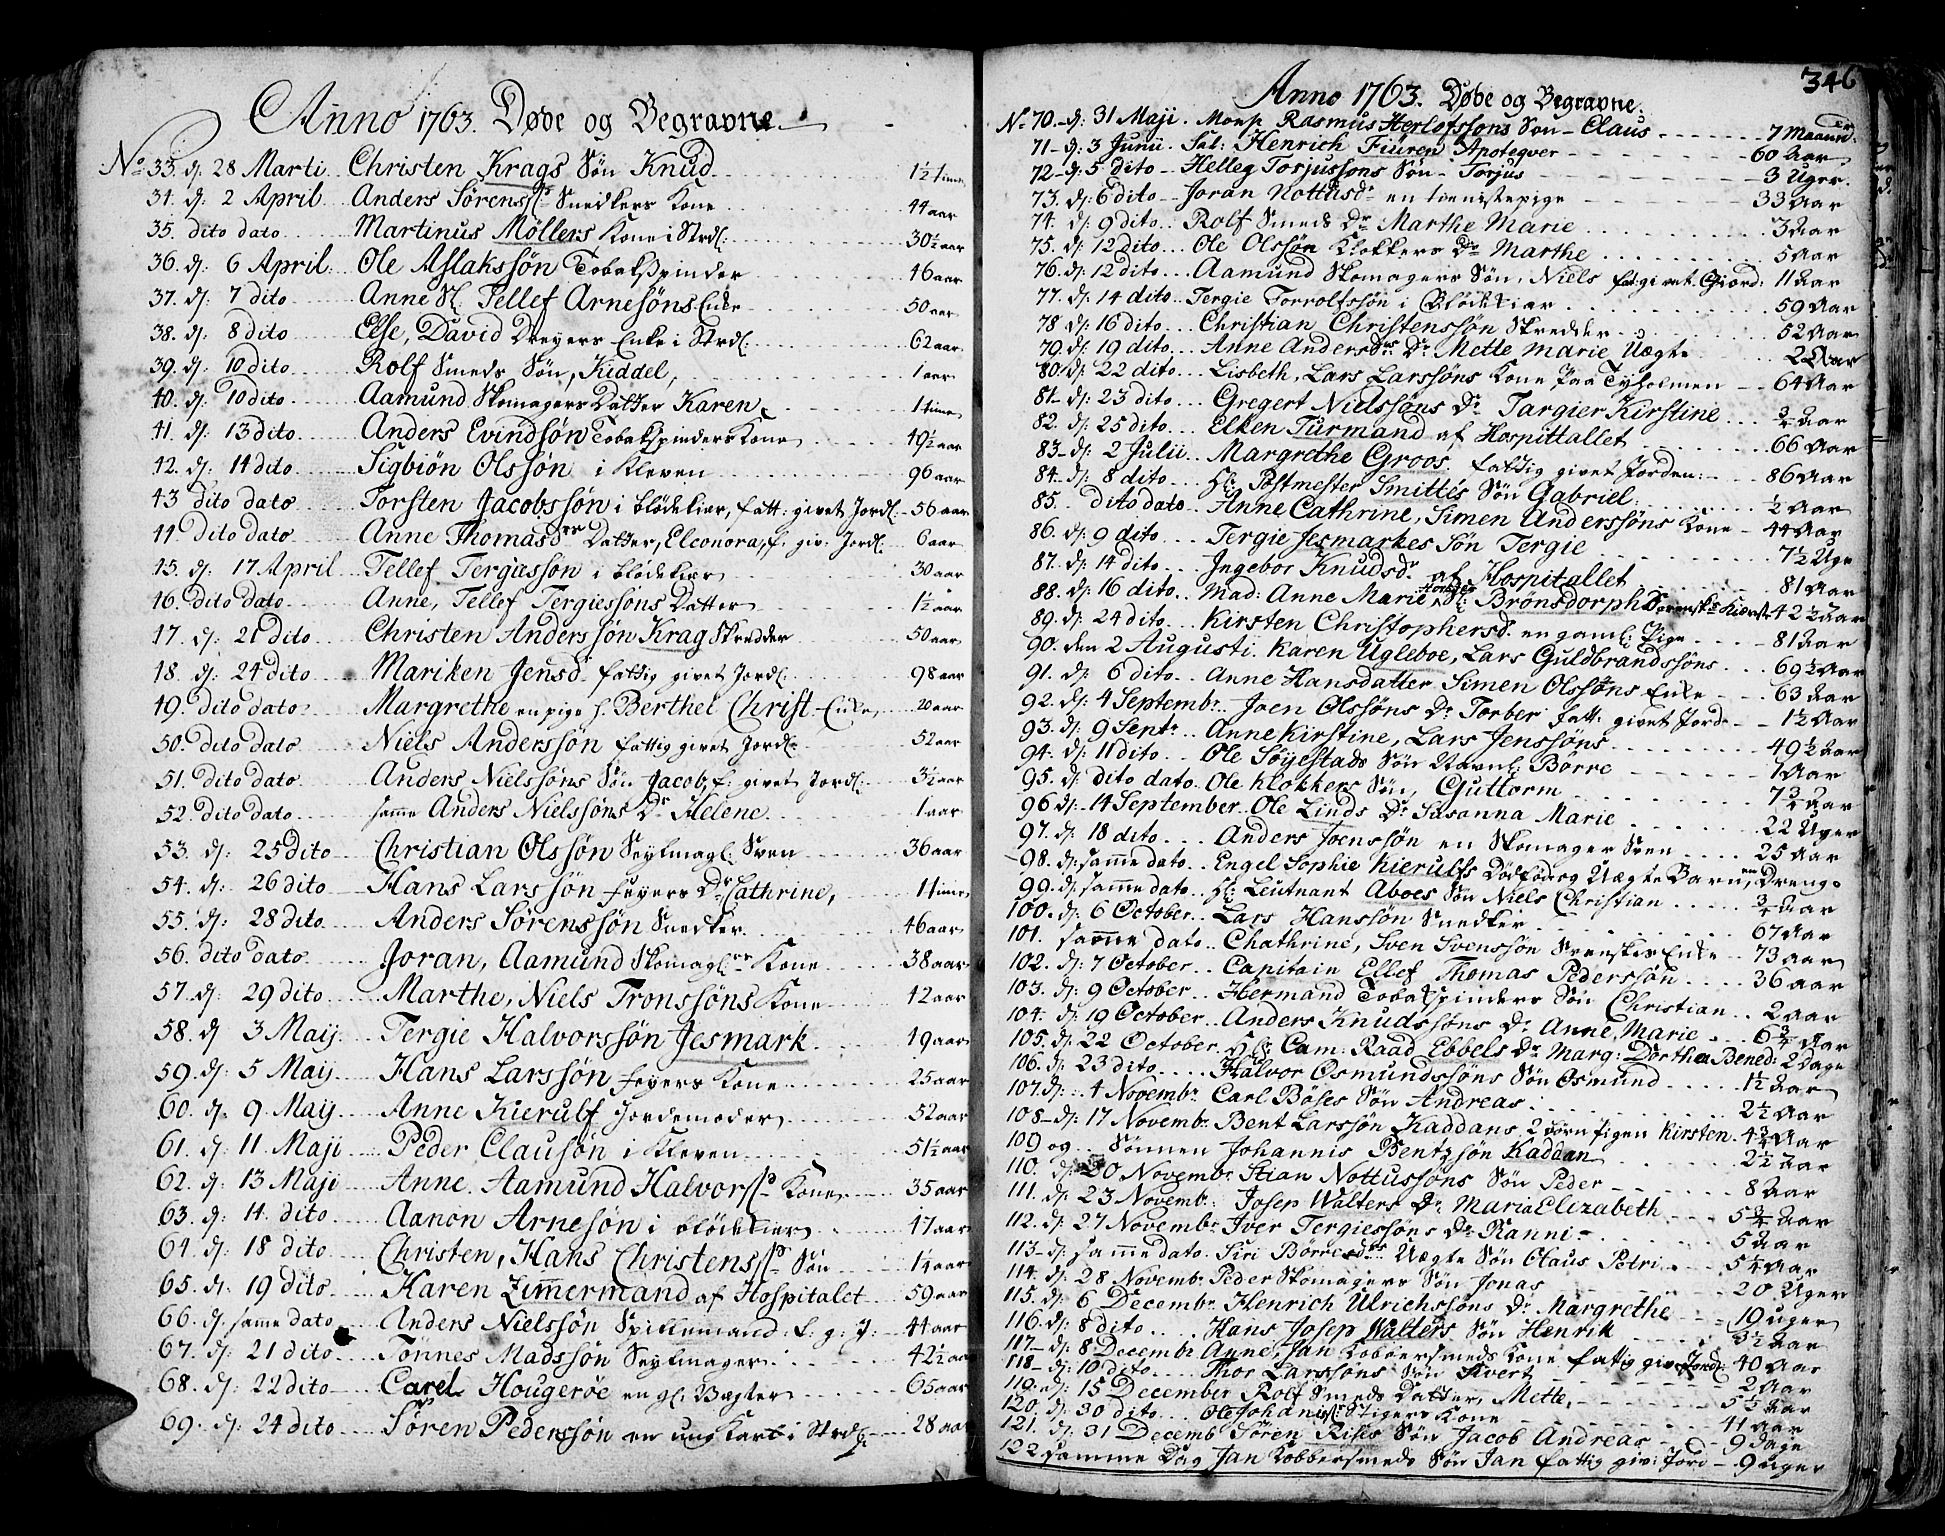 Anno 1763. Døde og Begravne
No 33. d. 28 Marti. Christen Krags Søn Knud 1½ time
34. d. 2 April. Anders Sørens Snedkers Kone 44 aar
35. dito dato Martinus Møllers Kone i Strdl: 30½ aar
36. d: 6 April. Ole Aslakssøn Tobakspinder 46 aar
37. d: 7 dito Anne Sl. Tellef Arnesøns Enke 50 aar
38. d: 8 dito Else, David Dreyers Enke i Strdl: 62 aar
39. d: 10 dito Rolf Smeds Søn, Kiddel, 1 aar
40. d: 10 dito Aamund Skomagers Datter Karen 1 time
41. d: 13 dito Anders Evindsøn Tobakspinders Kone 49½ aar
42. d: 14 dito Sigbiön Olssøn i Kleven 96 aar
43 dito dato Torsten Jacobssøn i blödekiær, fatt: givet Jord: 56 aar
44 dito dato Anne Thomasd Datter, Eleonora, f: giv: Jord: 6 aar
45. d: 17 April Tellef Tergiussøn i blödekiær 30 aar
46. dito dato Anne, Tellef Tergiessøns Datter 1½ aar
47. d: 21 dito Christen Anderssøn Krag Skredder 50 aar
48. d: 24 dito Mariken Jensd. fattig givet Jord: 98 aar
49. dito dato Margrethe en pige h. Berthel Christ-Enke 20 aar
50. dito dato Niels Anderssøn fattig givet Jord: 52 aar
51. dito dato Anders Nielssøns Søn Jacob, f: givet Jord: 3½ aar
52. dito dato samme Anders Nielssøns Dr Helene 1 aar
53. d: 25 dito Christian Olssøn Seylmag: Sven 36 aar
54. d: 26 dito Hans Larssøn Feyers Dr Cathrine, 1 time
55. d: 28 dito Anders Sørenssøn Snedker 46 aar
56. dito dato Joran, Aamund Skomag: Kone 38 aar
57. d: 29 dito Marthe, Niels Tronssøns Kone 42 aar
58. d 3 Maij. Tergie Halvorssøn Jesmark 49 aar
59. d: 5 Maij Hans Larssøn Feyers Kone 25 aar
60. d. 9 Maij. Anne Kierulf Jordemoder 52 aar
61. d: 11 Maji Peder Clausøn i Kleven 51½ aar
62. d. 13 Maji Anne. Aamund Halvors: Kone 35 aar
63. d: 14. dito Aanon Arnesøn i blödekier 47 aar
64. d: 18 dito Christen, Hans Christens Søn 1¼ aar
65. d: 19 dito Karen Zimermand af Hospitalet 59 aar
66. d: samme dato Anders Nielssøn Spillemand. f: g: J: 44 aar
67. d: 21 dito Tønnes Madssøn Seylmager 42½ aar
68. d: 22 dito Carel Hougerøe en gl. Bagter 65 aar
69. d: 24 dito Søren Pederssøn en ung Karl i Strdl: 28 aar
346
Anno 1763. Døde og Begravne.
No 70. d: 31 Maji. Monf Rasmus Herlofssons Søn - Claus 7 Maaned
71 - d: 3 Junii. Sal: Henrich Fiuren Apoteqver 60 Aar
72 - d: 5 dito - Helleg Torjussons Søn - Torjus 3 Uger.
73. d: 6 dito - Joran Nottusdr en tienistepige 33 Aar
74. d: 9 dito Rolf Smeds Dr Marthe Marie 3 Aar
75. d: 12 dito Ole Olssøn Klokkers Dr Marthe 5 Aar
76. d: 12 dito Aamund Skomagers Søn, Niels fat: givet Giord: 11 Aar
77. d: 14 dito Tergie Torrolfssøn i Blödekiær 59 Aar
78 d: 16 dito Christian Christenssøn Skredder 52 Aar
79. d: 19 dito Anne Andersdrs Dr Mette Marie Uægte 2 Aar
80. d: 22 dito Lisbeth, Lars Larssøns Kone paa Tyholmen 64 Aar
81 - d: 23 dito Gregert Nielssøns Dr Targier Kirstine ¾ Aar
82. d: 25 dito Elken Turmand af Hospittallet 66 Aar
83 - d: 2 Julii Margrethe Groos. fattig givet Jorden: 86 Aar
84. d: 8 dito Hl: Postmester Smittés Søn Gabriel. ½ Aar
85. dito dato Anne Cathrine, Simen Anderssøns Kone 44 Aar
86. d: 9 dito Tergie Jesmarkes Søn Tergie 7½ Uge
87. d: 14 dito Ingebor Knudsd. af Hospitallet 81 Aar
88. d: 16 dito Mad: Anne Marie Sl: Brönsdorph Sorensk: Kierst 42½ Aar
89. d: 24 dito Kirsten Christophersd. en gaml. Pige 81 Aar
90. den 2 Augusti. Karen Ugleboe, Lars Guldbrandssøns 69½ Aar
91. d: 6 dito. Anne Hansdatter Simen Olssøns Enke 63 Aar
92. d: 4 Septembr. Joen Olssøns Dr Torber fatt: givet Jord 1½ Aar
93. d: 9 Septr Anne Kirstine, Lars Jenssøns 49½ Aar
94. d: 11 dito Ole Söyestads Søn Navnl: Børre 1 Aar
95. d: dito dato. Ole Klokkers Søn, Guttorm 7¾ Aar
96 d: 14 September. Ole Linds Dr Susanna Marie 22 Uger
97. d: 18 dito Anders Joenssøn en Skomager Sven 25 Aar
98. d: samme dato Engel Sophie Kierulfs Dødfødeg Uægte Barn, en Dreng
99. d: samme dato Hl: Leutnant Aboes Søn Niels Christian ¾ Aar
100. d: 6 October Lars Hanssøn Snedker 67 Aar
101. samme dato Chathrine, Sven Svenssøn Svenskes Enke 73 aar
102. d: 7 October Capitain Ellef Thomas Pederssøn 36 aar
103. d: 9 October Hermand Tobakspinders Søn Christian 2 aar
104. d: 19 October Anders Knudssøns Dr Anne Marie 6¾ Aar
105. d: 22 October Hl: Cam: Raad Ebbels Dr Marg: Dorthea Bened: 2 Dage
106. d: 23 dito Halvor Osmundssøns Søn Osmund 1½ Aar
107 d: 4 Novembr. Carl Böses Søn Andreas 2½ Aar
108 - d: 17 Novembr Bent Larssøn Kaddans 2 börn Pigen Kirsten 4¾ Aar
109 og Sønnen Johannis Bentzsøn Kaddan 2½ Aar
110. d: 20 Novembr Stian Nottussøns Søn Peder 8 Aar
111. d: 23 Novemb. Josep Walters Dr Maria Elizabeth 5¾ Aar
112. d: 27 Novembr Iver Tergiessøns Dr Ranni 5 Aar
113 - d: samme dato. Siri Börresdrs Uægte Søn Claus Petri 5¼ Aar
114. d: 28 Novembr Peder Skomagers Søn Jonas 20 Uger
115. d: 6 Decembr. Henrich Ulrichssøns Dr Margrethe 19 uger
116. d: 8 dito Hans Josep Walters Søn Henrik 3½ Aar
117 - d: 8 Decembr Anne, Jan Kobbersmeds Kone fattig giv: Jord: 40 Aar
118 - d: 10 dito Thor Larssøns Søn Sivert 2 Aar
119. d: 15 December Rolf Smeds Datter, Mette, 5½ Aar
120. d: 30 dito Ole Johannis: Stigers Kone 41 Aar
121. d: 31 Decemb Søren Rises Søn Jacob Andreas 9 Dage
122 samme Dag Jan Kobbersmeds Søn Jan fattig giv: Jord 9 uger